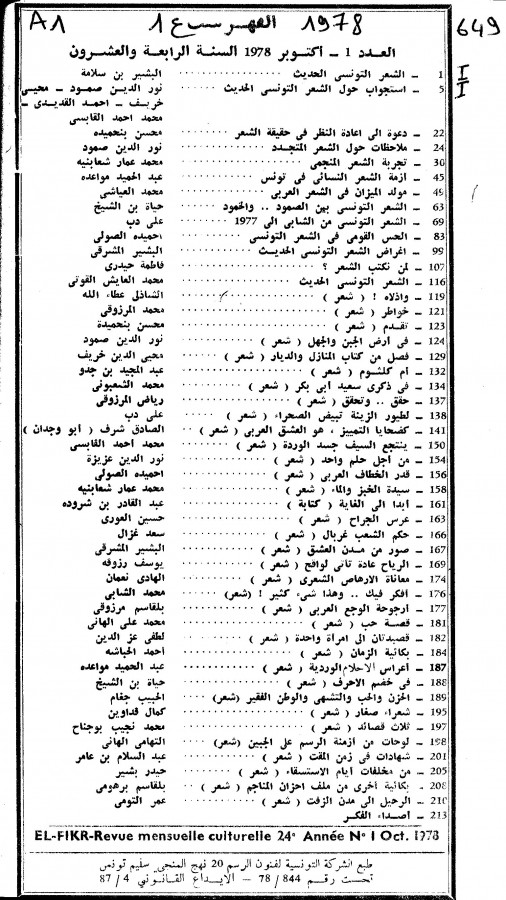 A1 1 الفهرست ع 1 1978 649
العدد 1 - أكتوبر 1978 السنة الرابعة والعشرون
I
I
1 - الشعر التونسى الحديث ········ البشير بن سلامة
5 - استجواب حول الشعر التونسى الحديث ···· نور الدين صمود - محيى
خريف - احمد القديدى -
محمد احمد القابسى
22 - دعوة الى اعادة النظر فى حقيقة الشعر ······ محسن بنحميده
24 - ملاحظات حول الشعر المتجدد ········ نور الدين صمود
30 - تجربة الشعر المنجمى ········ محمد عمار شعابنيه
45 - ازمة الشعر النسائى فى تونس ······ عبد الحميد مواعده
49 - مولد الميزان فى الشعر العربى ······ محمد العياشى
63 - الشعر التونسى بين الصمود .. والخمود ······ حياة بن الشيخ
69 - الشعر التونسى من الشابى الى 1977 ······ على دب
83 - الحس القومى فى الشعر التونسى ······ احميده الصولى
99 - اغراض الشعر التونسى الحديث ······ البشير المشرقى
107 - لمن نكتب الشعر ؟ ········ فاطمة حيدرى
116 - الشعر التونسى الحديث ········ محمد العايش القوتى
119 - واذلاه ! ( شعر ) ········ الشاذلى عطاء الله
121 - خواطر ( شعر ) ········ محمد المرزوقى
123 - تقدم ( شعر ) ········ محسن بنحميدة
124 - فى أرض الجبن والجهل ( شعر ) ······ نور الدين صمود
129 - فصل من كتاب المنازل والديار ( شعر ) ······ محيى الدين خريف
132 - أم كلثوم ( شعر ) ········ عبد المجيد بن جدو
134 - فى ذكرى سعيد أبى بكر ( شعر ) ······ محمد الشعبونى
137 - حقق .. وتحقق ( شعر ) ········ رياض المرزوقى
138 - لطيور الزينة تبيض الصحراء ( شعر ) ······ على دب
141 - كضحايا التمييز ، هو العشق العربى ( شعر ) ·· الصادق شرف ( أبو وجدان )
150 - ينتجع السيف جسد الوردة ( شعر ) ······ محمد احمد القابسى
154 - من أجل حلم واحد ( شعر ) ········ نور الدين عزيزة
156 - قدر الخطاف العربى ( شعر ) ········ احميده الصولى
158 - سيدة الخبز والماء ( شعر ) ········ محمد عمار شعابنيه
161 - أبدا الى الغاية ( كتابة ) ········ عبد القادر بن شروده
163 - عرس الجراح ( شعر ) ········ حسين العورى
166 - حكم الشعب غربال ( شعر ) ········ سعد غزال
167 - صور من مدن العشق ( شعر ) ······ البشير المشرقى
169 - الرياح عادة تأتى لواقح ( شعر ) ······ يوسف رزوقه
174 - معاناة الارهاص الشعرى ( شعر ) ······ الهادى نعمان
176 - أفكر فيك .. وهذا شىء كثير ! (شعر) ···· محمد الشابى
177 - أرجوحة الوجع العربى ( شعر ) ······ بلقاسم مرزوقى
181 - قصة حب ( شعر ) ········ محمد على الهانى
182 - قصيدتان الى امرأة واحدة ( شعر ) ······ لطفى عز الدين
184 - بكائية الزمان ( شعر ) ········ أحمد الحباشه
187 - أعراس الاحلام الوردية ( شعر ) ······ عبد الحميد مواعده
188 - فى خضم الاحرف ( شعر ) ········ حياة بن الشيخ
189 - الحزن والحب والتشهى والوطن الفقير (شعر) ···· الحبيب جغام
195 - شعراء صغار ( شعر ) ········ كمال قداوين
197 - ثلاث قصائد ( شعر ) ········ محمد نجيب بوجناح
198 - لوحات من أزمنة الرسم على الجبين (شعر) ···· التهامى الهانى
201 - شهادات فى زمن المقت ( شعر ) ······ عبد السلام بن عامر
205 - من مخلفات أيام الاستسقاء ( شعر ) ······ حيدر بشير
208 - بكائية أخرى من ملف احزان المناجم ( شعر ) ···· بلقاسم برهومى
210 - الرحيل الى مدن الزفت ( شعر ) ······ عمر التومى
213 - أصداء الفكر
EL-FIKR-Revue mensuelle culturelle 24e Année N° 1 Oct. 1978
طبع الشركة التونسية لفنون الرسم 20 نهج المنجى سليم تونس
تحت رقم 844 / 78 - الايداع القانونى 4 / 87